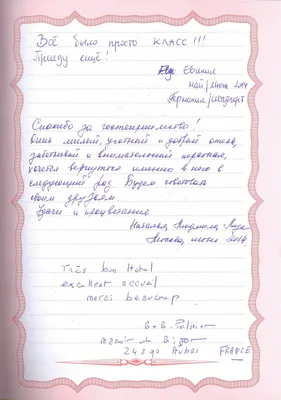 Всё было просто КЛАСС!!!
Приду ещё!
Евгения
май/июнь 2014
Германия/Штутгарт
Спасибо за гостеприимство!
Очень милый, уютный и добрый отель,
заботливый и внимательный персонал,
хочется вернуться именно в него в
следующий раз. Будем советовать
своим друзьям.
Удачи и процветания
Наталья, Людмила
Москва, июнь 2014
Très bon Hotel
excellent accueil
merci beaucoup
B + B
manoir de
24390 FRANCE